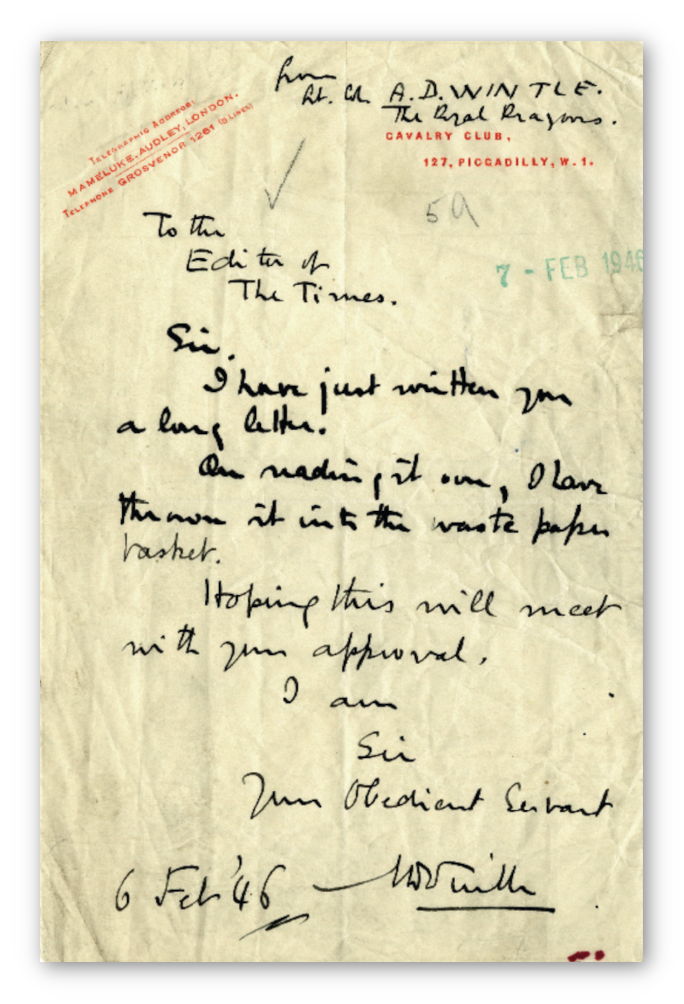 from
Lt. Col. A.D. WINTLE.
The Royal Dragoons.
CAVALRY CLUB,
127, PICCADILLY, W.1.
TELEGRAPHIC ADDRESS:
MAMELUKE, AUDLEY, LONDON.
TELEPHONE GROSVENOR 1261 (5 LINES)
59
7 - FEB 1946
To the
Editor of
The Times.
Sir,
I have just written you
a long letter.
On reading it over, I have
thrown it into the waste paper
basket.
Hoping this will meet
with your approval,
I am
Sir
Your Obedient Servant
6 Feb '46 — ADWintle